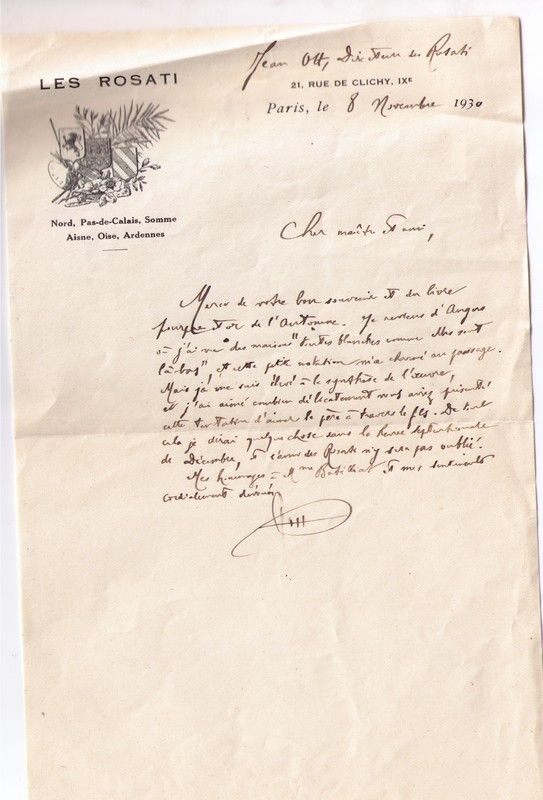 Jean Ott, Directeur des Rosati
LES ROSATI
21, RUE DE CLICHY, IXE
Paris, le 8 Novembre 1930
Nord, Pas-de-Calais, Somme
Aisne, Oise, Ardennes
Cher maître et ami,
Merci de votre bon souvenir et du livre
pourpre et or de l'Automne. Je reviens d'Angers
où j'ai vu "des maisons toutes blanches comme elles sont
là-bas" et cette petite notation m'a charmé au passage.
Mais je me suis élevé à la synthèse de l'œuvre,
et j'ai aimé combien délicatement vous avez présenté
cette tentation d'aimer le père à travers le fils. De tout
cela je dirai quelque chose dans la Revue septentrionale
de Décembre, et l'ami des Rosati n'y sera pas oublié.
Mes hommages à Mme et mes sentiments
cordialement dévoués
Ott